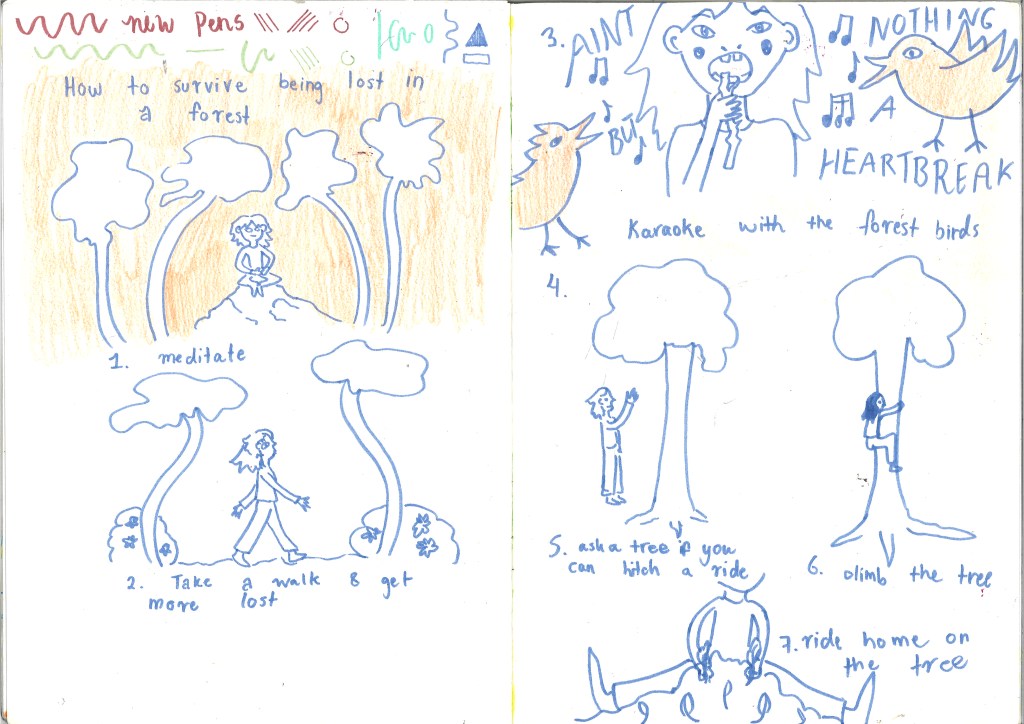 new Pens
How to survive being lost in
a forest
1. meditate
2. Take a walk & get
more lost
3. AINT
NOTHING
BUT
A
HEARTBREAK
Karaoke with the forest birds
4.
5. ask a tree if you
can hitch a ride
6. climb the tree
7. ride home on
the tree